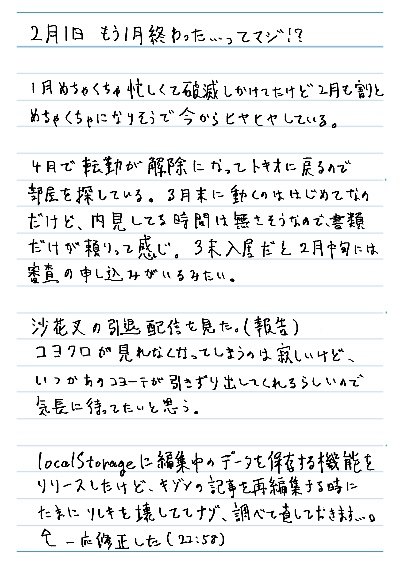 2月1日 もう1月終わった…ってマジ!?
1月めちゃくちゃ忙しくて破滅しかけてたけど2月も割と
めちゃくちゃになりそうで今からヒヤヒヤしている。
4月で転勤が解除になってトキオに戻るので
部屋を探している。3月末に動くのははじめてなの
だけど、内見してる時間は無さそうなので、書類
だけが頼りって感じ。3末入居だと2月中旬には
審査の申し込みがいるみたい。
沙花叉の引退配信を見た。(報告)
コヨクロが見れなくなってしまうのは寂しいけど、
いつかあのコヨーテが引きずり出してくれるらしいので
気長に待ってたいと思う。
localStorageに編集中のデータを保存する機能を
リリースしたけど、キゾンの記事を再編集する時に
たまにリレキを壊しててナゾ、調べて直しておきます…。
↑一応修正した(22:58)